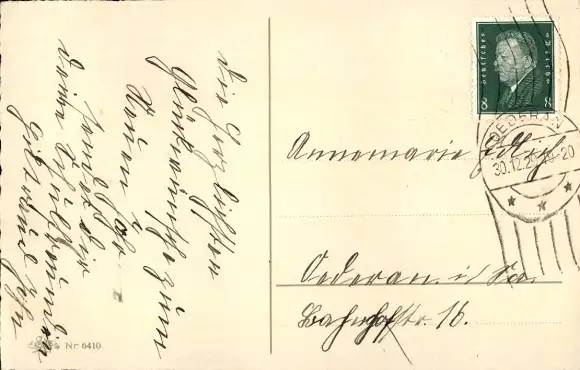 Die herzlichsten
Glückwünsche zum
neuen Jahr
sendet dir
deine Schulfreundin
Nr. 6410
Deutsches Reich
8 8
OEDERAN
30.12.29.19-20
Annemarie
Oederan i/Sa.
Bahnhofstr. 16.